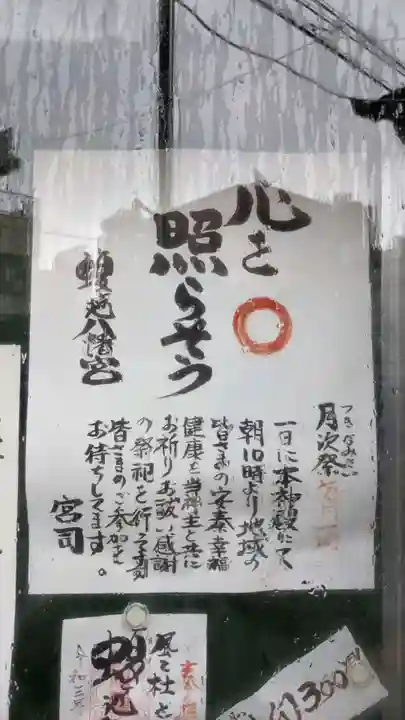 心を
照らそう
八幡宮
つきなみさい
月次祭 毎月一日
一日に本神殿にて
朝10時より地域の
皆さまの安泰、幸福
健康を当神主と共に
お祈りお祓い感謝
の祭祀を行います
皆さまのご参加を
お待ちしてます。
宮司
風と杜と
令和三年
300円